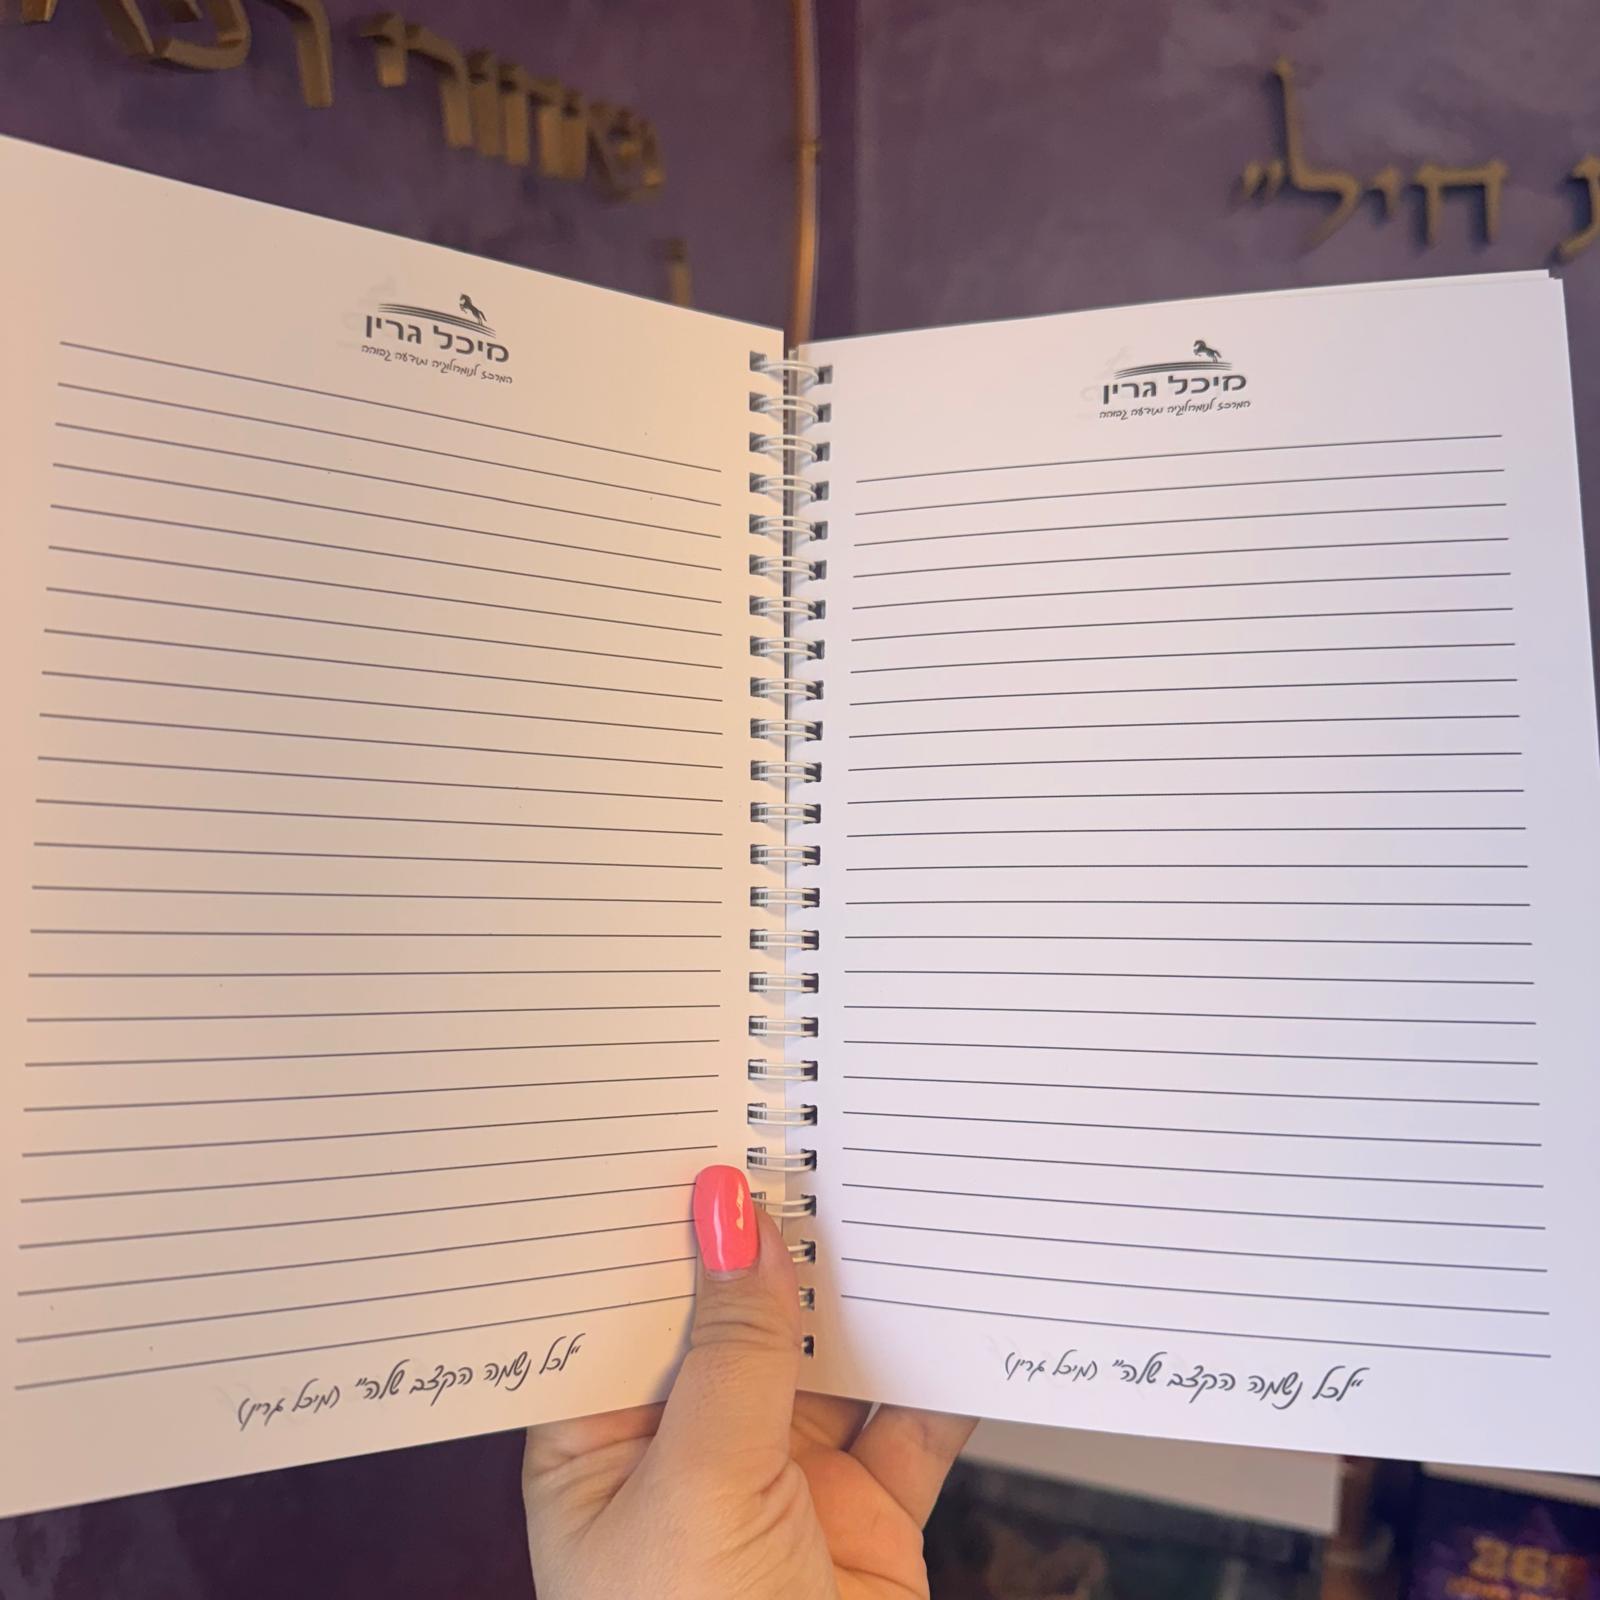 ת חיל"
מיכל גרין
המרכז לנומרולוגיה ותודעה גבוהה
"לכל נשמה הקצב שלה" (מיכל גרין)
מיכל גרין
המרכז לנומרולוגיה ותודעה גבוהה
"לכל נשמה הקצב שלה" (מיכל גרין)